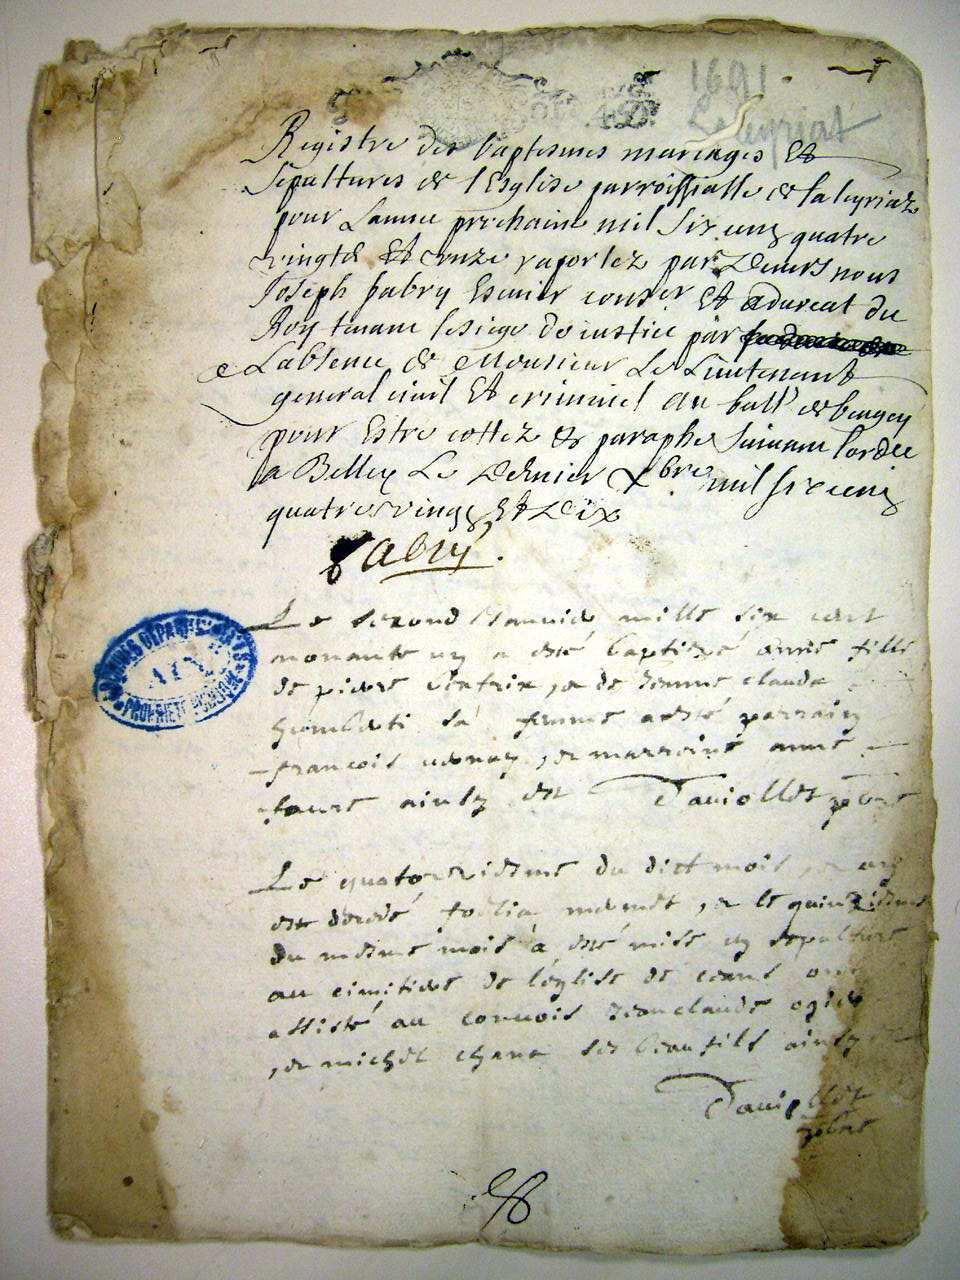 1691
Leleyriat
Registre des baptesmes mariages Et
sepultures de l'Esglise parroissialle de la leyriaz
pour Lannee prochaine mil six cens quatre
vingts Et onze raportez par Devers nous
Joseph fabry Escuier conser Et advocat du
Roy tenant le siege de justice par
Labsence de Monsieur Le Lieutenant
general civil Et criminel au ball de bugey
pour Estre cottez & paraphe suivant lordce
a Belley Le Dernier Xbre mil six cens
quatre vingts Et Dix
fabry.
Le second Janvier mille six cent
nonante un a esté baptizé anne fille
de pierre , & de Jeanne claude
sa femme a esté parrain
francois , & marraine anne
ainsy est Daviollet
Le quatorziesme du dict mois , & an
est decedé , & le quinziesme
du mesme mois a esté mise en sepulture
au cimitiere de leglise de ceans ont
assisté au convois Jean claude ogier
, & michel ses beau fils ainsy
Daviollet
ARCHIVES DEPARTEMENTALES
AIN
PROPRIETE PUBLIQUE